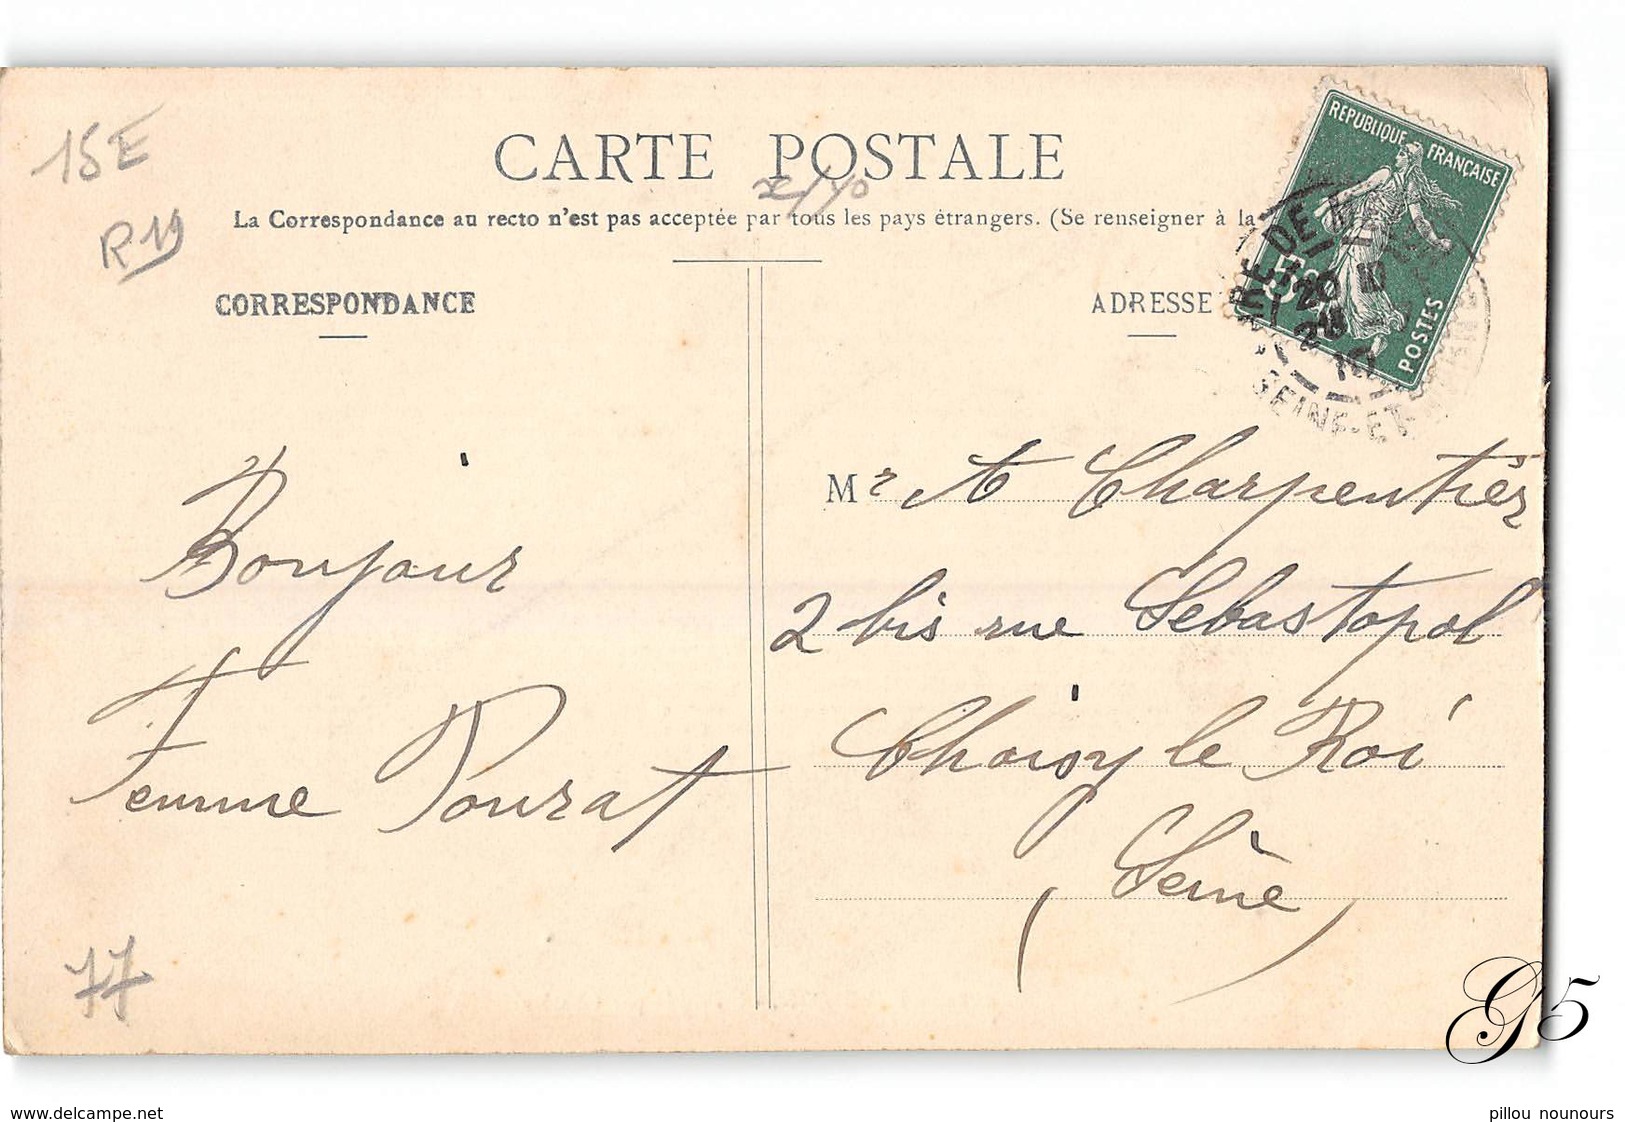 15E
R19
CARTE POSTALE
La Correspondance au recto n'est pas acceptée par tous les pays étrangers. (Se renseigner à la
CORRESPONDANCE
ADRESSE
REPUBLIQUE FRANÇAISE
5c
POSTES
GARE DE
20
10
SEINE-ET-
Bonjour
Femme Pourat
Mr A Charpentier
2 bis rue Sebastopol
Choisy le Roi
(Seine)
77
G5
www.delcampe.net
pillou nounours